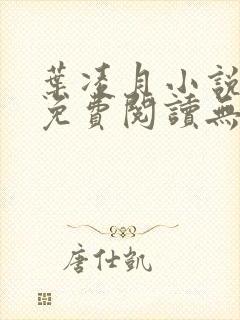 葉凌月小說
免費閱讀無
唐仕凱